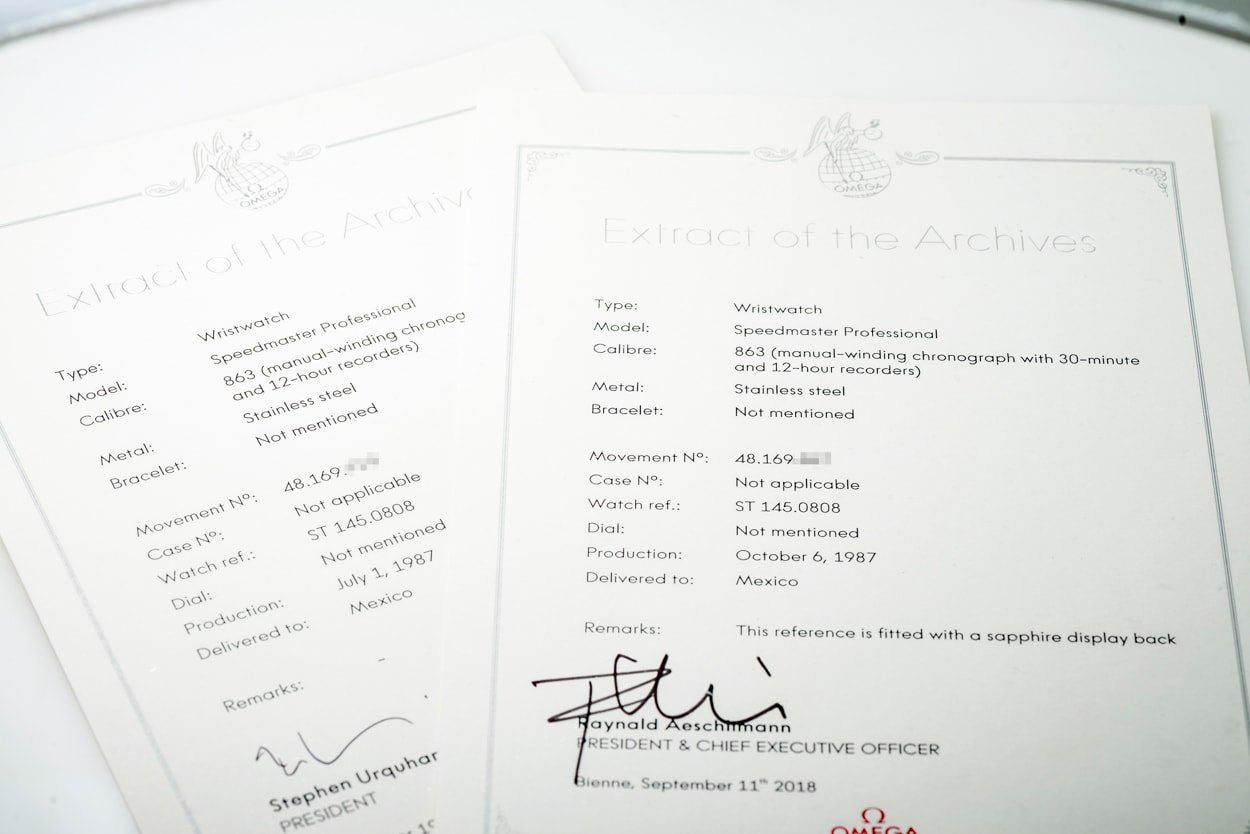 OMEGA
Extract of the Archiv
Type: Wristwatch
Model: Speedmaster Professional
Calibre: 863 (manual-winding chronog
and 12-hour recorders)
Metal: Stainless steel
Bracelet: Not mentioned
Movement Nº: 48.169.
Case Nº: Not applicable
Watch ref.: ST 145.0808
Dial: Not mentioned
Production: July 1, 1987
Delivered to: Mexico
Remarks: -
Stephen Urquhar
PRESIDENT
OMEGA
Extract of the Archives
Type: Wristwatch
Model: Speedmaster Professional
Calibre: 863 (manual-winding chronograph with 30-minute
and 12-hour recorders)
Metal: Stainless steel
Bracelet: Not mentioned
Movement Nº: 48.169
Case Nº: Not applicable
Watch ref.: ST 145.0808
Dial: Not mentioned
Production: October 6, 1987
Delivered to: Mexico
Remarks: This reference is fitted with a sapphire display back
Raynald Aeschlimann
PRESIDENT & CHIEF EXECUTIVE OFFICER
Bienne, September 11th 2018
Ω
OMEGA